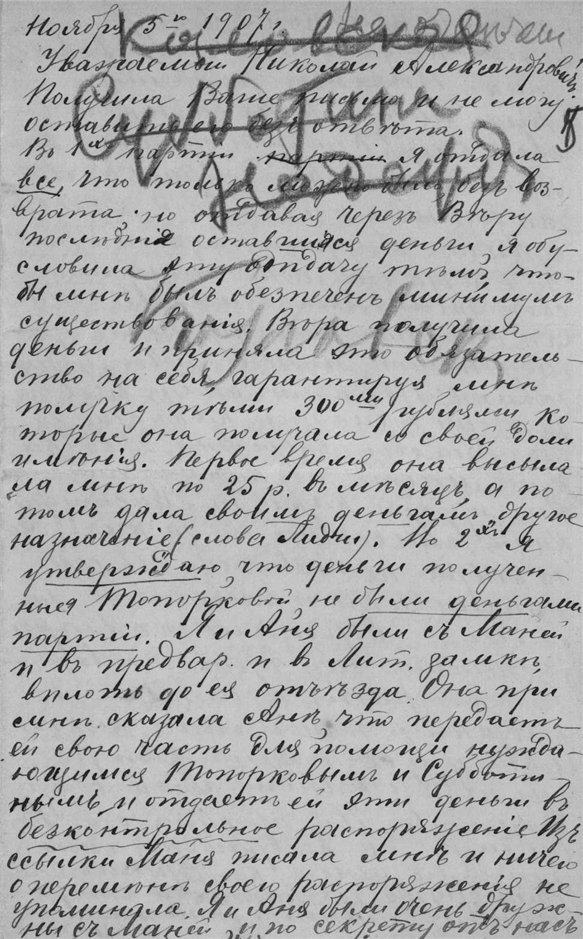 Ноября 5го 1907 г.
Уважаемый Николай Александровичъ!
Получила Ваше письмо и не могу
оставить его безъ отвѣта.
Въ 1хъ партіи я отдала
все, что только можно было безъ воз-
врата. но отдавая черезъ Вѣру
послѣднія оставшіяся деньги я обу-
словила эту отдачу тѣмъ, что-
бы мнѣ былъ обезпеченъ минимумъ
существованія. Вѣра получила
деньги и приняла это обязатель-
ство на себя, гарантируя мнѣ
получку тѣми 300ми рублями ко-
торые она получала со своей доли
имѣнія. Первое время она высыла
ла мнѣ по 25 р. въ мѣсяцъ, а по-
томъ дала своимъ деньгамъ другое
назначеніе (слова Лидіи). Но 2хъ Я
утверждаю, что деньги получен-
ныя Топорковой не были деньгами
партіи. Я и Аня были съ Маней
и въ предвар. и въ Лит. замкѣ,
вплоть до ея отъѣзда. Она при
мнѣ сказала Анѣ что передаетъ
ей свою часть для помощи нужда-
ющимся Топорковымъ и Субботи-
нымъ, и отдаетъ ей эти деньги въ
безконтрольное распоряженіе Изъ
ссылки Маня писала мнѣ и ничего
о перемѣнѣ своего распоряженія не
упоминала. Я и Аня были очень друж-
ны съ Маней, и по секрету отъ насъ